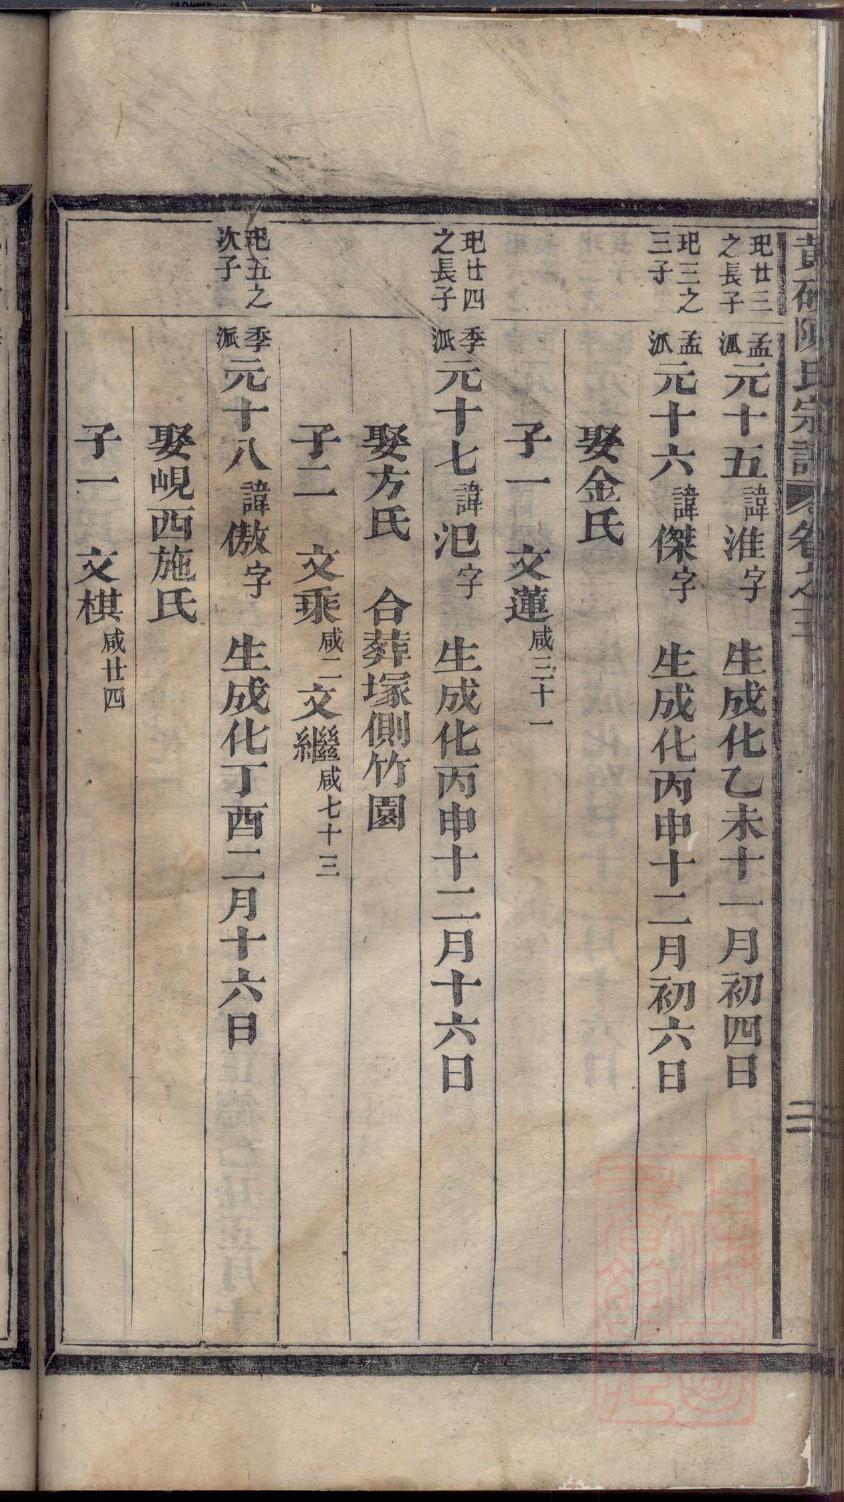 陳氏宗譜 卷之三
玘廿三之長子 孟派 元十五 諱淮字 生成化乙未十一月初四日
玘三之三子 孟派 元十六 諱傑字 生成化丙申十二月初六日
娶金氏
子一 文蓮 咸三十一
玘廿四之長子 季派 元十七 諱汜字 生成化丙申十二月十六日
娶方氏 合葬塚側竹園
子二 文乘 咸二 文繼 咸七十三
玘五之次子 季派 元十八 諱傲字 生成化丁酉二月十六日
娶峴西施氏
子一 文棋 咸廿四